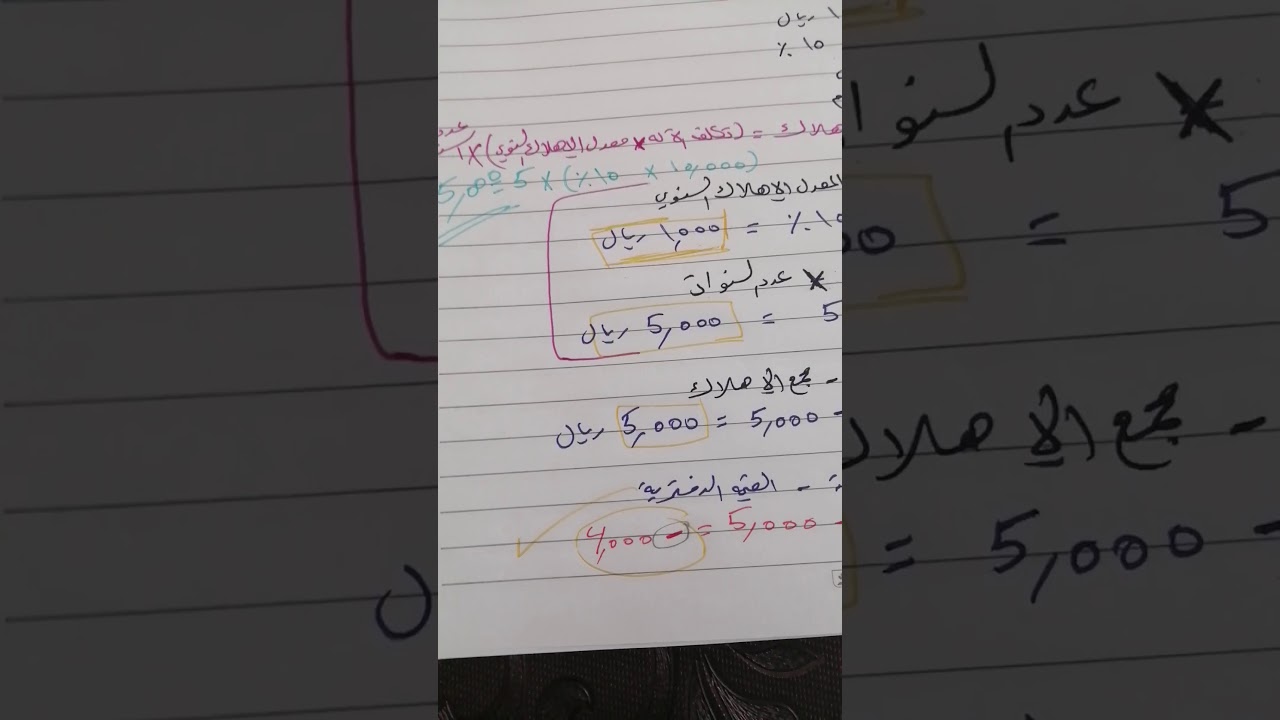 ريال
١٠ ٪
هلاك = (تكلفة الآلة × معدل الإهلاك السنوي) ×
(١٠,٠٠٠ × ١٠٪) × 5 = 5,000
المعدل الإهلاك السنوي
١٠٪ = ١,٠٠٠ ريال
× عدد السنوات
5 = 5,000 ريال
- مجمع الإهلاك
- 5,000 = 5,000 ريال
- القيمة الدفترية
- 5,000 = - 4,000